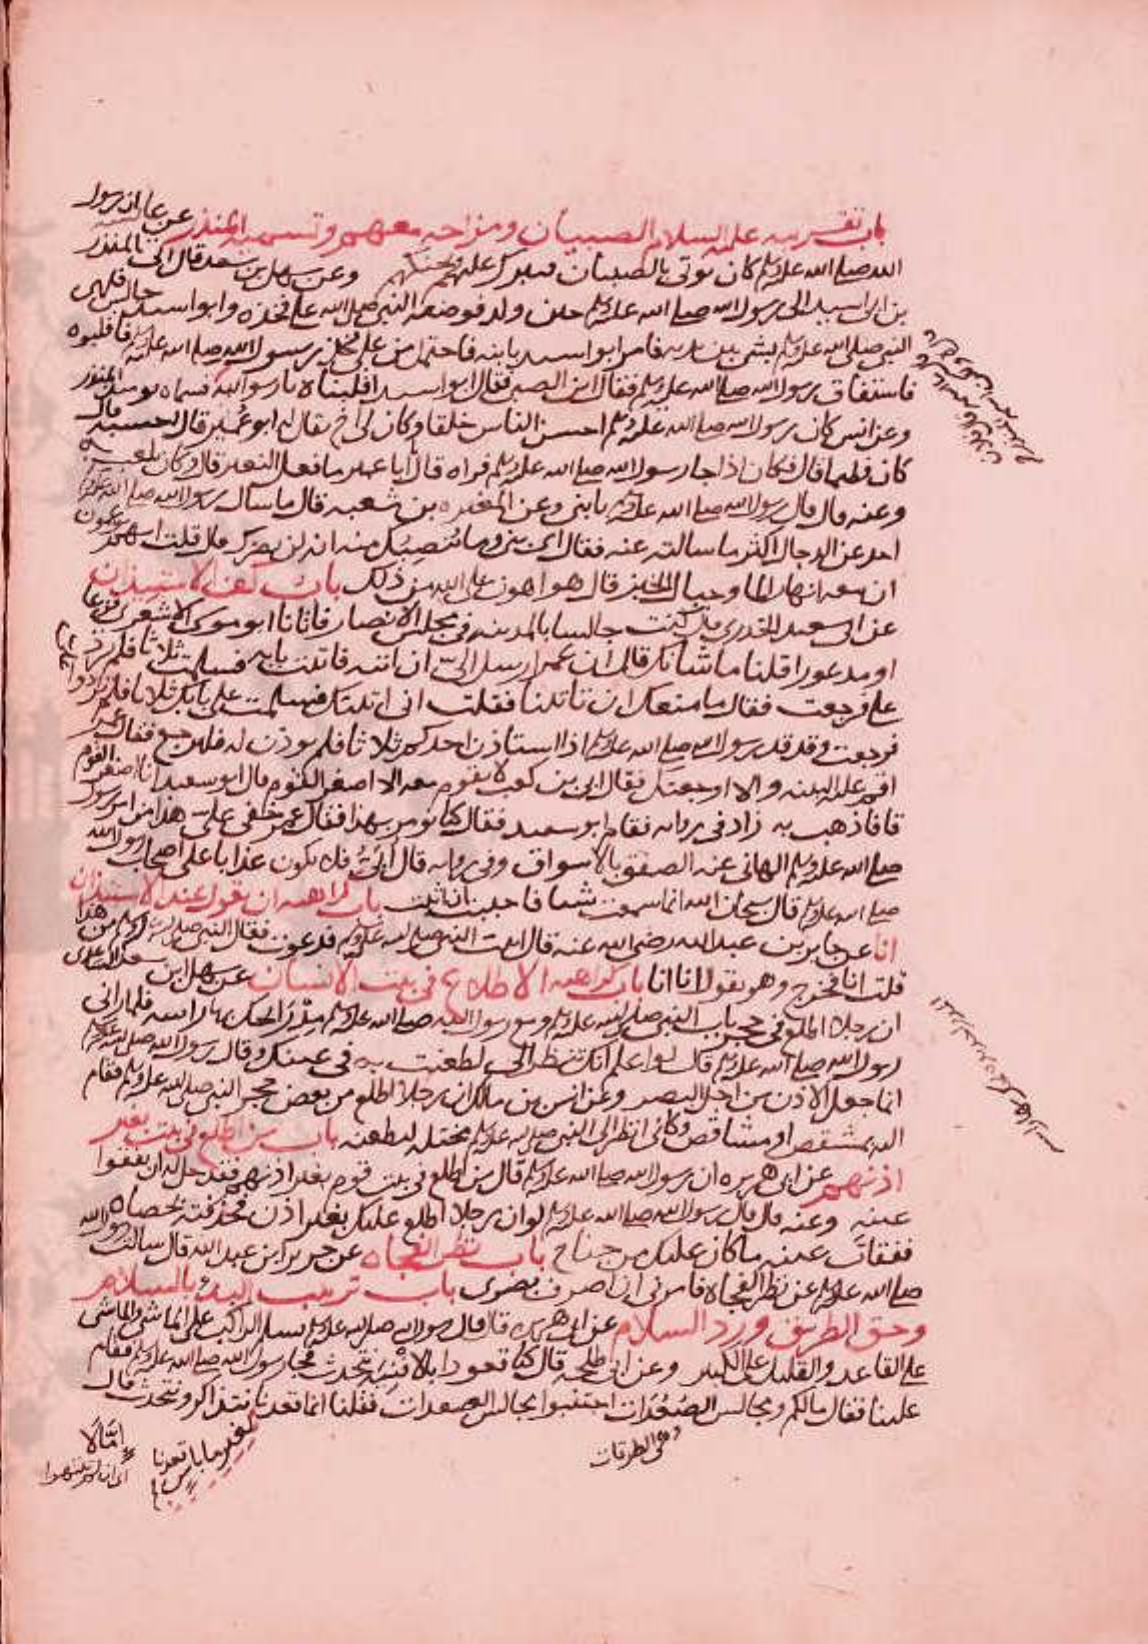 باب تقريبه عليه السلام الصبيان ومزاحه معهم وتسميه المنذر عن عايشه ان رسول
الله صلى الله عليه وسلم كان يوتى بالصبيان فيبرك عليهم ويحنكهم وعن سهل بن سعد قال اتى بالمنذر
بن ابى اسيد الى رسول الله صلى الله عليه وسلم حين ولد فوضعه النبى صلى الله على فخذه وابو اسيد جالس فلهى
النبى صلى الله عليه وسلم بشى بين يديه فامر ابو اسيد بابنه فاحتمل من على فخذ رسول الله صلى الله عليه وسلم فاقلبوه
فاستفاق رسول الله صلى الله عليه وسلم فقال اين الصبى فقال ابو اسيد اقلبناه يا رسول الله فسماه يومئذ المنذر
وعن انس كان رسول الله صلى الله عليه وسلم احسن الناس خلقا وكان لى اخ يقال له ابو عمير قال احسبه قال
كان فطيما قال فكان اذا جا رسول الله صلى الله عليه وسلم فراه قال ابا عمير ما فعل النغير قال وكان يلعب به
وعنه قال قال رسول الله صلى الله عليه وسلم يا بنى وعن المغيره بن شعبه قال ما سال رسول الله صلى الله عليه وسلم
احد عن الدجال اكثر ما سالته عنه فقال اى بنى وما ينصبك منه انه لن يضرك قال قلت انهم يزعمون
ان معه انهار الما وجبال الخبز قال هو اهون على الله من ذلك باب كيف الاستيذان
عن ابى سعيد الخدرى قال كنت جالسا بالمدينه فى مجلس الانصار فاتانا ابو موسى الاشعرى فزعا
او مذعورا قلنا ما شانك قال ان عمر ارسل الى ان اتيه فاتيت بابه فسلمت ثلاثا فلم يرد
على فرجعت فقال ما منعك ان تاتينا فقلت انى اتيتك فسلمت على بابك ثلاثا فلم تردوا على
فرجعت وقد قال رسول الله صلى الله عليه وسلم اذا استاذن احدكم ثلاثا فلم يوذن له فليرجع فقال عمر
اقم عليه البينه والا اوجعتك فقال ابى بن كعب لا يقوم معه الا اصغر القوم قال ابو سعيد انا اصغر القوم
قال فاذهب به زاد فى روايه فقام ابو سعيد فقال كنا نومر بهذا فقال عمر خفى على هذا من امر رسول
صلى الله عليه وسلم الهانى عنه الصفق بالاسواق وفى روايه قال ابى فلا تكون عذابا على اصحاب رسول الله
صلى الله عليه وسلم قال سبحان الله انما سمعت شيا فاحببت ان اتثبت باب كراهيه ان يقول عند الاستيذان
انا عن جابر بن عبد الله رضى الله عنه قال اتيت النبى صلى الله عليه وسلم فدعوت فقال النبى صلى الله عليه وسلم من هذا
قلت انا فخرج وهو يقول انا انا باب كراهيه الاطلاع فى بيت الانسان عن سهل بن سعد الساعدى
ان رجلا اطلع فى جحر باب النبى صلى الله عليه وسلم ومع رسول الله صلى الله عليه وسلم مدرى يحك بها راسه فلما راى
رسول الله صلى الله عليه وسلم قال لو اعلم انك تنظر الى لطعنت به فى عينك وقال رسول الله صلى الله عليه وسلم
انما جعل الاذن من اجل البصر وعن انس بن مالك ان رجلا اطلع من بعض حجر النبى صلى الله عليه وسلم فقام
اليه بمشقص او مشاقص وكانى انظر الى النبى صلى الله عليه وسلم يختله ليطعنه باب من اطلع فى بيت بغير
اذنهم عن ابى هريره ان رسول الله صلى الله عليه وسلم قال من اطلع فى بيت قوم بغير اذنهم فقد حل له ان يفقوا
عينه وعنه قال قال رسول الله صلى الله عليه وسلم لو ان رجلا اطلع عليك بغير اذن فخذفته بحصاه
ففقات عينه ما كان عليك من جناح باب نظر الفجاه عن جرير ابن عبد الله قال سالت رسول الله
صلى الله عليه وسلم عن نظر الفجاه فامرنى ان اصرف بصرى باب ترتيب البدؤ بالسلام
وحق الطريق ورد السلام عن ابى هريره قال قال رسول الله صلى الله عليه وسلم يسلم الراكب على الماشى والماشى
على القاعد والقليل على الكثير وعن ابى طلحه قال كنا قعودا بالافنيه نتحدث فجا رسول الله صلى الله عليه وسلم فقام
علينا فقال مالكم ومجالس الصعدات اجتنبوا مجالس الصعدات فقلنا انما قعدنا نتذاكر ونتحدث قال
لغير ما باس قعدنا
امالا
وهى الطرقات